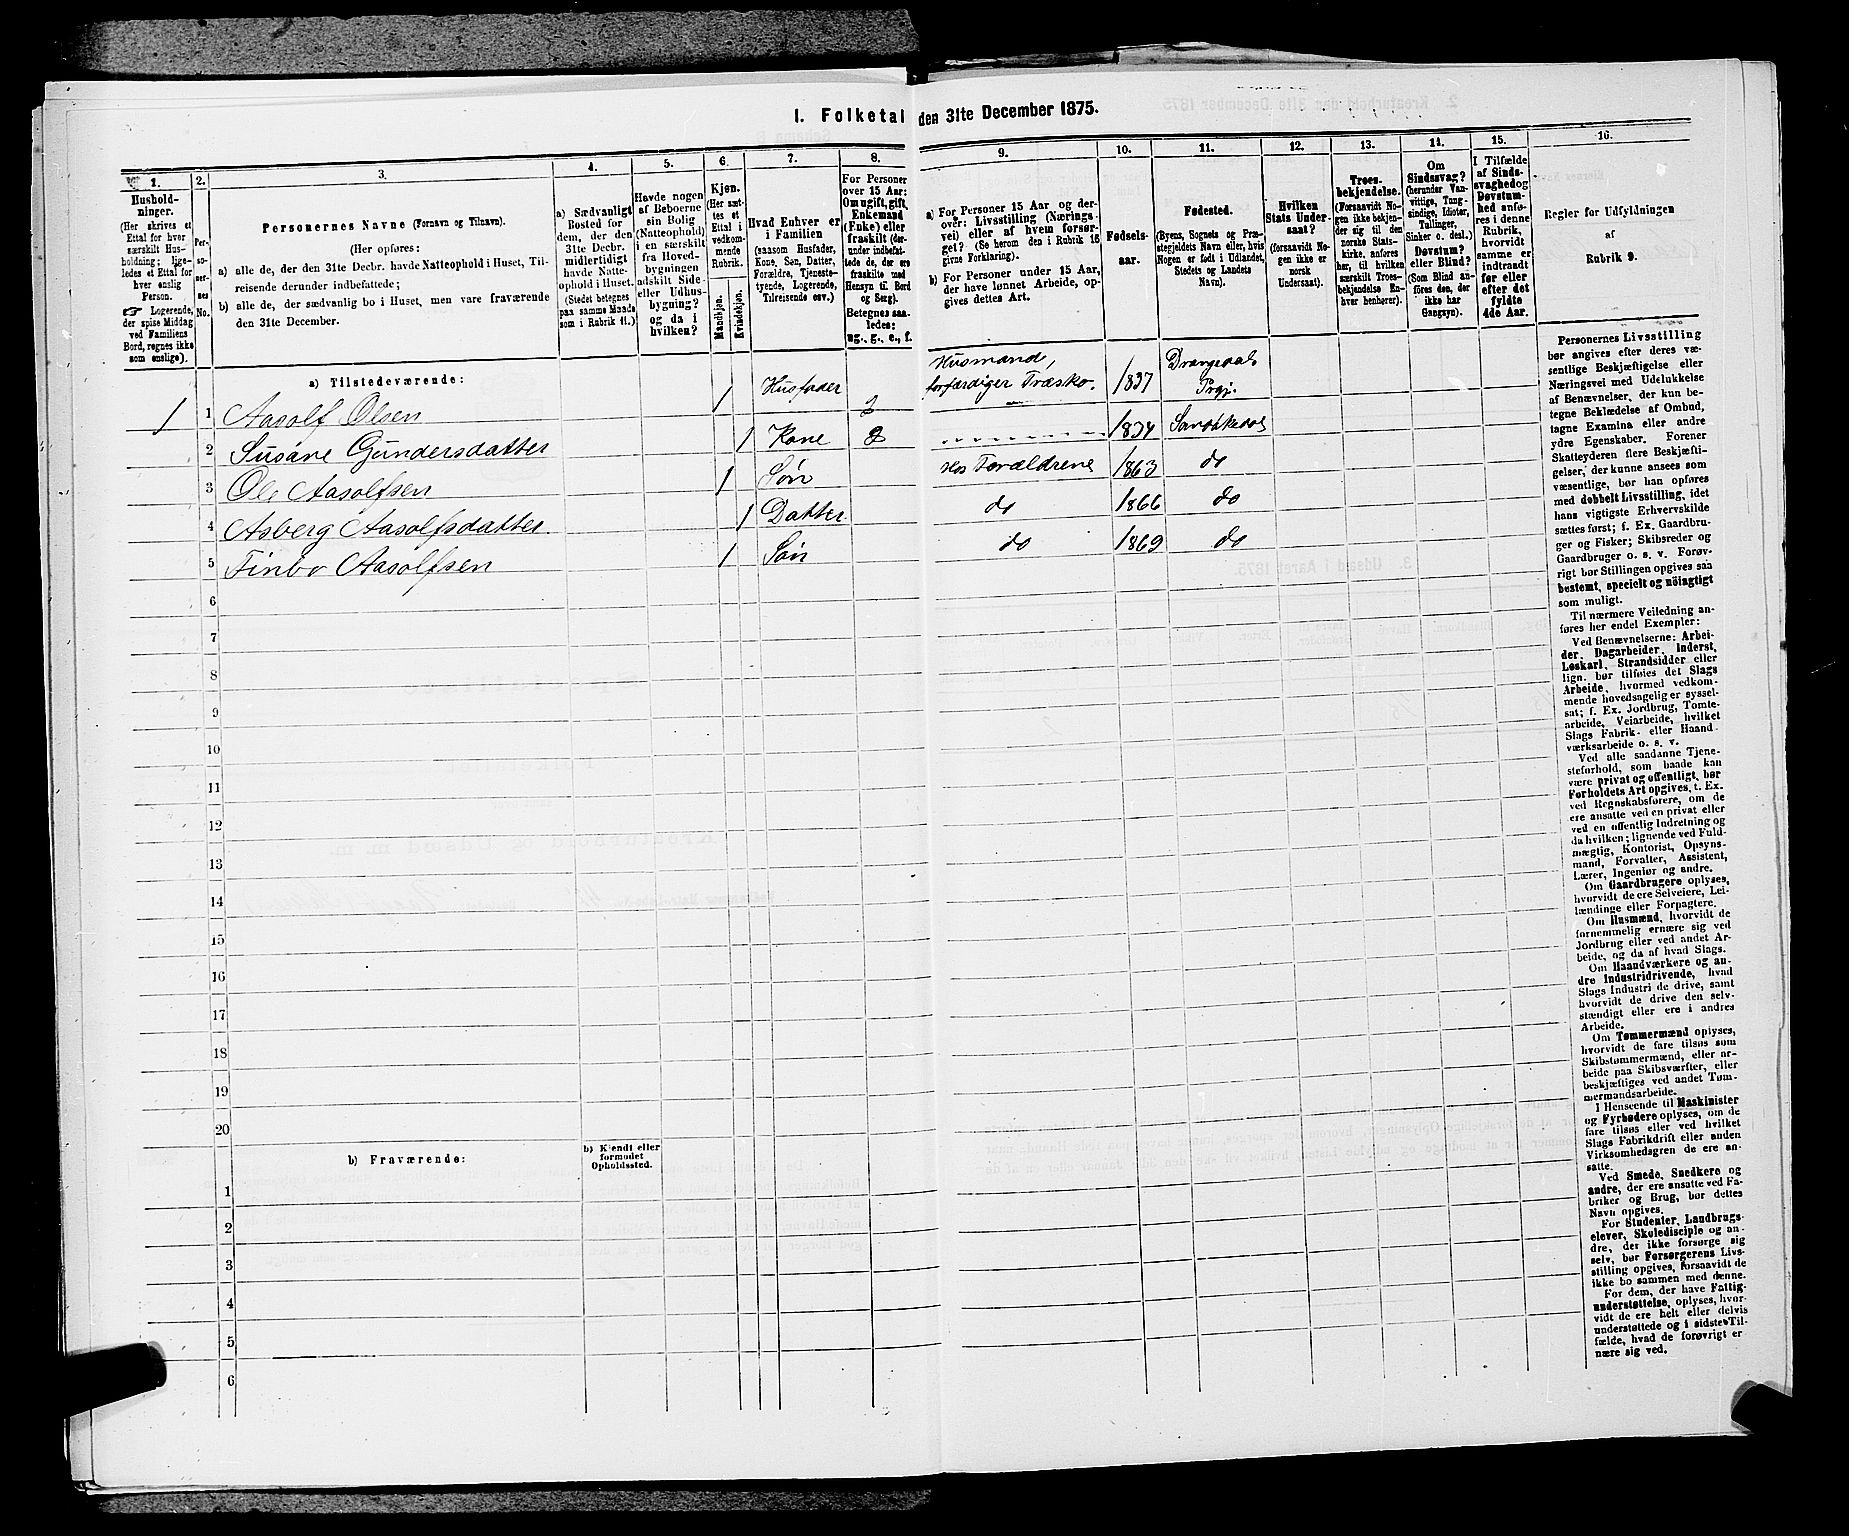 I. Folketal den 31te December 1875.
1.
Hushold-
ninger.
(Her skrives et
Ettal for hver
særskilt Hus-
holdning; lige-
ledes et Ettal for
hver enslig
Person.
☞ Logerende,
der spise Middag
ved Familiens
Bord, regnes ikke
som enslige).
2.
Per-
so-
ner-
nes
No.
3.
Personernes Navne (Fornavn og Tilnavn).
(Her opføres:
a) alle de, der den 31te Decbr. havde Natteophold i Huset, Til-
reisende derunder indbefattede;
b) alle de, der sædvanlig bo i Huset, men vare fraværende
den 31te December.
4.
a) Sædvanligt
Bosted for
dem, der den
31te Decbr.
midlertidigt
havde Natte-
ophold i Huset.
(Stedet betegnes
paa samme Maade
som i Rubrik 11.)
5.
Havde nogen
af Beboerne
sin Bolig
(Natteophold)
i en særskilt
fra Hoved-
bygningen
adskilt Side-
eller Udhus-
bygning?
og da i
hvilken?
6.
Kjøn.
(Her sæt-
tes et
Ettal i
vedkom-
mende
Rubrik.
Mandkjøn.
Kvindekjøn.
7.
Hvad Enhver er
i Familien
(saasom Husfader,
Kone, Søn, Datter,
Forældre, Tjeneste-
tyende, Logerende,
Tilreisende osv.)
8.
For Personer
over 15 Aar:
Om ugift, gift,
Enkemand
(Enke) eller
fraskilt (der-
under indbefat-
tede de, der ere
fraskilte med
Hensyn til Bord
og Seng).
Betegnes saa-
ledes:
ug., g., e., f.
9.
a) For Personer 15 Aar og der-
over: Livsstilling (Nærings-
vei) eller af hvem forsør-
get? (Se herom den i Rubrik 16
givne Forklaring).
b) For Personer under 15 Aar,
der have lønnet Arbeide, op-
gives dettes Art.
10.
Fødsels-
aar.
11.
Fødested.
(Byens, Sognets og Præ-
stegjeldets Navn eller, hvis
Nogen er født i Udlandet,
Stedets og Landets
Navn).
12.
Hvilken
Stats Under-
saat?
(forsaavidt No-
gen ikke er
norsk
Undersaat).
13.
Troes-
bekjendelse.
(Forsaavidt No-
gen ikke bekjen-
der sig til den
norske Stats-
kirke, anføres
her, til hvilken
særskilt Troes-
bekjendelse En-
hver henhører).
14.
Om
Sindssvag?
(herunder Van-
vittige, Tung-
sindige, Idioter,
Tullinger,
Sinker o. desl.)
Døvstum?
eller Blind?
(Som Blind an-
føres den, der
ikke har
Gangsyn).
15.
I Tilfælde
af Sinds-
svaghed og
Døvstum-
hed anfø-
res i denne
Rubrik,
hvorvidt
samme er
indtraadt
før eller
efter det
fyldte
4de Aar.
16.
Regler for Udfyldningen
af
Rubrik 9.
a) Tilstedeværende:
1 1 Aasolf Olsen 1 Husfader Husmand, forfærdiger Træsko. 1837 Drangedals Prgj.
2 Susane Gundersdatter 1 Kone 1834
3 Ole Aasolfsen 1 Søn Hos Forældrene 1863 do
4 Asberg Aasolfsdatter 1 Datter do 1866 do
5 Finbo Aasolfsen 1 Søn do 1869 do
6
7
8
9
10
11
12
13
14
15
16
17
18
19
20
b) Fraværende:
b) Kjendt eller
formodet
Opholdssted.
1
2
3
4
5
6
Personernes Livsstilling
bør angives efter deres væ-
sentlige Beskjæftigelse eller
Næringsvei med Udelukkelse
af Benævnelser, der kun be-
tegne Beklædelse af Ombud,
tagne Examina eller andre
ydre Egenskaber. Forener
Skatteyderen flere Beskjæfti-
gelser, der kunne ansees som
væsentlige, bør han opføres
med dobbelt Livsstilling, idet
hans vigtigste Erhvervskilde
sættes først; f. Ex. Gaardbru-
ger og Fisker; Skibsreder og
Gaardbruger o. s. v. Forøv-
rigt bør Stillingen opgives saa
bestemt, specielt og nöiagtigt
som muligt.
Til nærmere Veiledning an-
føres her endel Exempler:
Ved Benævnelserne: Arbei-
der, Dagarbeider, Inderst,
Løskarl, Strandsidder eller
lign. bør tilføies det Slags
Arbeide, hvormed vedkom-
mende hovedsagelig er syssel-
sat; f. Ex. Jordbrug, Tomte-
arbeide, Veiarbeide, hvilket
Slags Fabrik- eller Haand-
værksarbeide o. s. v.
Ved alle saadanne Tjene-
steforhold, som baade kan
være privat og offentligt, bør
Forholdets Art opgives, t. Ex.
ved Regnskabsførere, om de
ere ansatte ved en privat eller
ved en offentlig Indretning og
da hvilken; lignende ved Fuld-
mægtig, Kontorist, Opsyns-
mand, Forvalter, Assistent,
Lærer, Ingeniør og andre.
Om Gaardbrugere oplyses,
hvorvidt de ere Selveiere, Lei-
lændinge eller Forpagtere.
Om Husmænd, hvorvidt de
fornemmelig ernære sig ved
Jordbrug eller ved andet Ar-
beide, og da af hvad Slags.
Om Haandværkere og an-
dre Industridrivende, hvad
Slags Industri de drive, samt
hvorvidt de drive den selv-
stændigt eller ere i andres
Arbeide.
Om Tømmermænd oplyses,
hvorvidt de fare tilsøs som
Skibstømmermænd, eller ar-
beide paa Skibsværfter, eller
beskjæftiges ved andet Tøm-
mermandsarbeide.
I Henseende til Maskinister
og Fyrbødere oplyses, om de
fare tilsøs eller ved hvilket
Slags Fabrikdrift eller anden
Virksomhed de ere an-
satte.
Ved Smede, Snedkere og
andre, der ere ansatte ved Fa-
briker og Brug, bør dettes
Navn opgives.
For Studenter, Landbrugs-
elever, Skoledisciple og an-
dre, der ikke forsørge sig
selv, bør Forsørgerens Livs-
stilling opgives, forsaavidt de
ikke bo sammen med denne.
For dem, der have Fattig-
understøttelse, oplyses, hvor-
vidt de ere helt eller delvis
understøttede og i sidste Til-
fælde, hvad de forøvrigt er
nære sig ved.